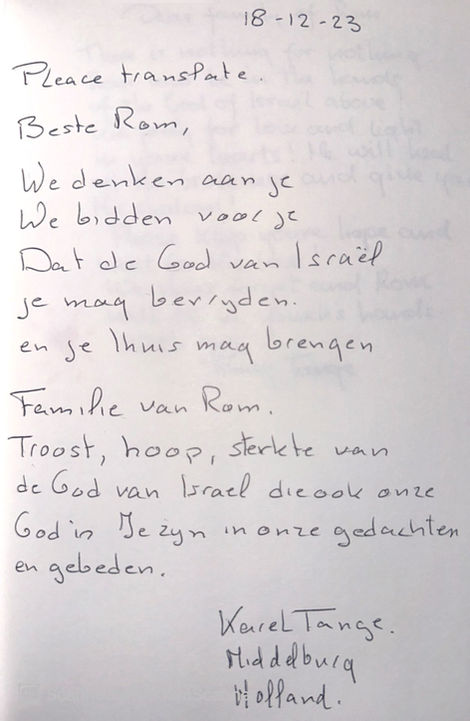 18-12-23
Pleace translate.
Beste Rom,
We denken aan je
We bidden voor je
Dat de God van Israël
je mag bevryden.
en je Thuis mag brengen
Familie van Rom.
Troost, hoop, sterkte van
de God van Israel die ook onze
God is Je zyn in onze gedachten
en gebeden.
Karel Tange.
Middelburg
Holland.